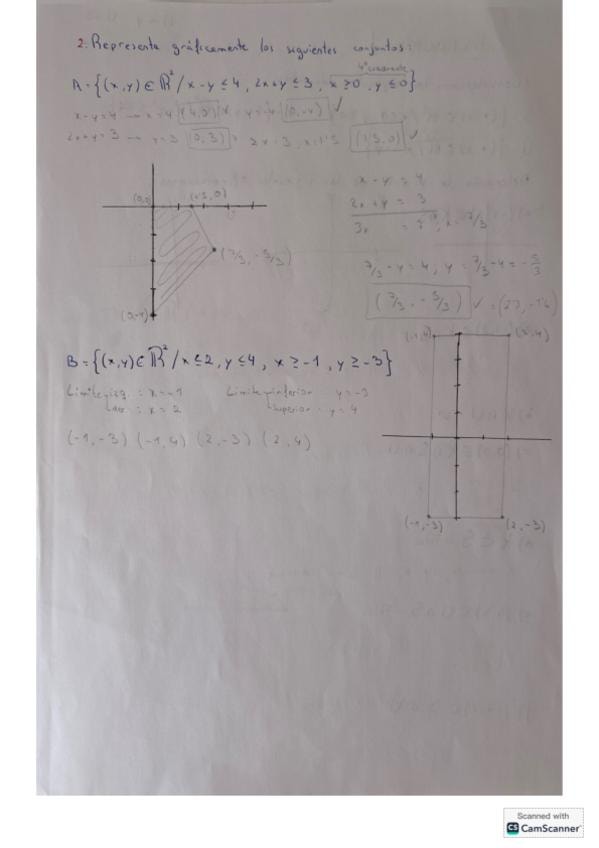 2. Representa gráficamente los siguientes conjuntos:
4º cuadrante
A = {(x,y) ∈ ℝ² / x-y ≤ 4, 2x+y ≤ 3, x ≥ 0, y ≤ 0}
x-y=4 → x=4 (4,0) y=-4 (0,-4) ✓
2x+y=3 → y=3 (0,3) 2x=3, x=1'5 (1'5,0) ✓
x - y = 4
2x + y = 3
3x = 7, x = 7/3
7/3 - y = 4, y = 7/3 - 4 = -5/3
(7/3, -5/3) ✓
(0,0) (1'5,0)
(7/3, -5/3)
(0,-4)
B = {(x,y) ∈ ℝ² / x ≤ 2, y ≤ 4, x ≥ -1, y ≥ -3}
Limite izq : x = -1 Limite inferior y = -3
der : x = 2 superior y = 4
(-1,-3) (-1,4) (2,-3) (2,4)
(-1,4) (2,4)
(-1,-3) (2,-3)
Scanned with
CS CamScanner